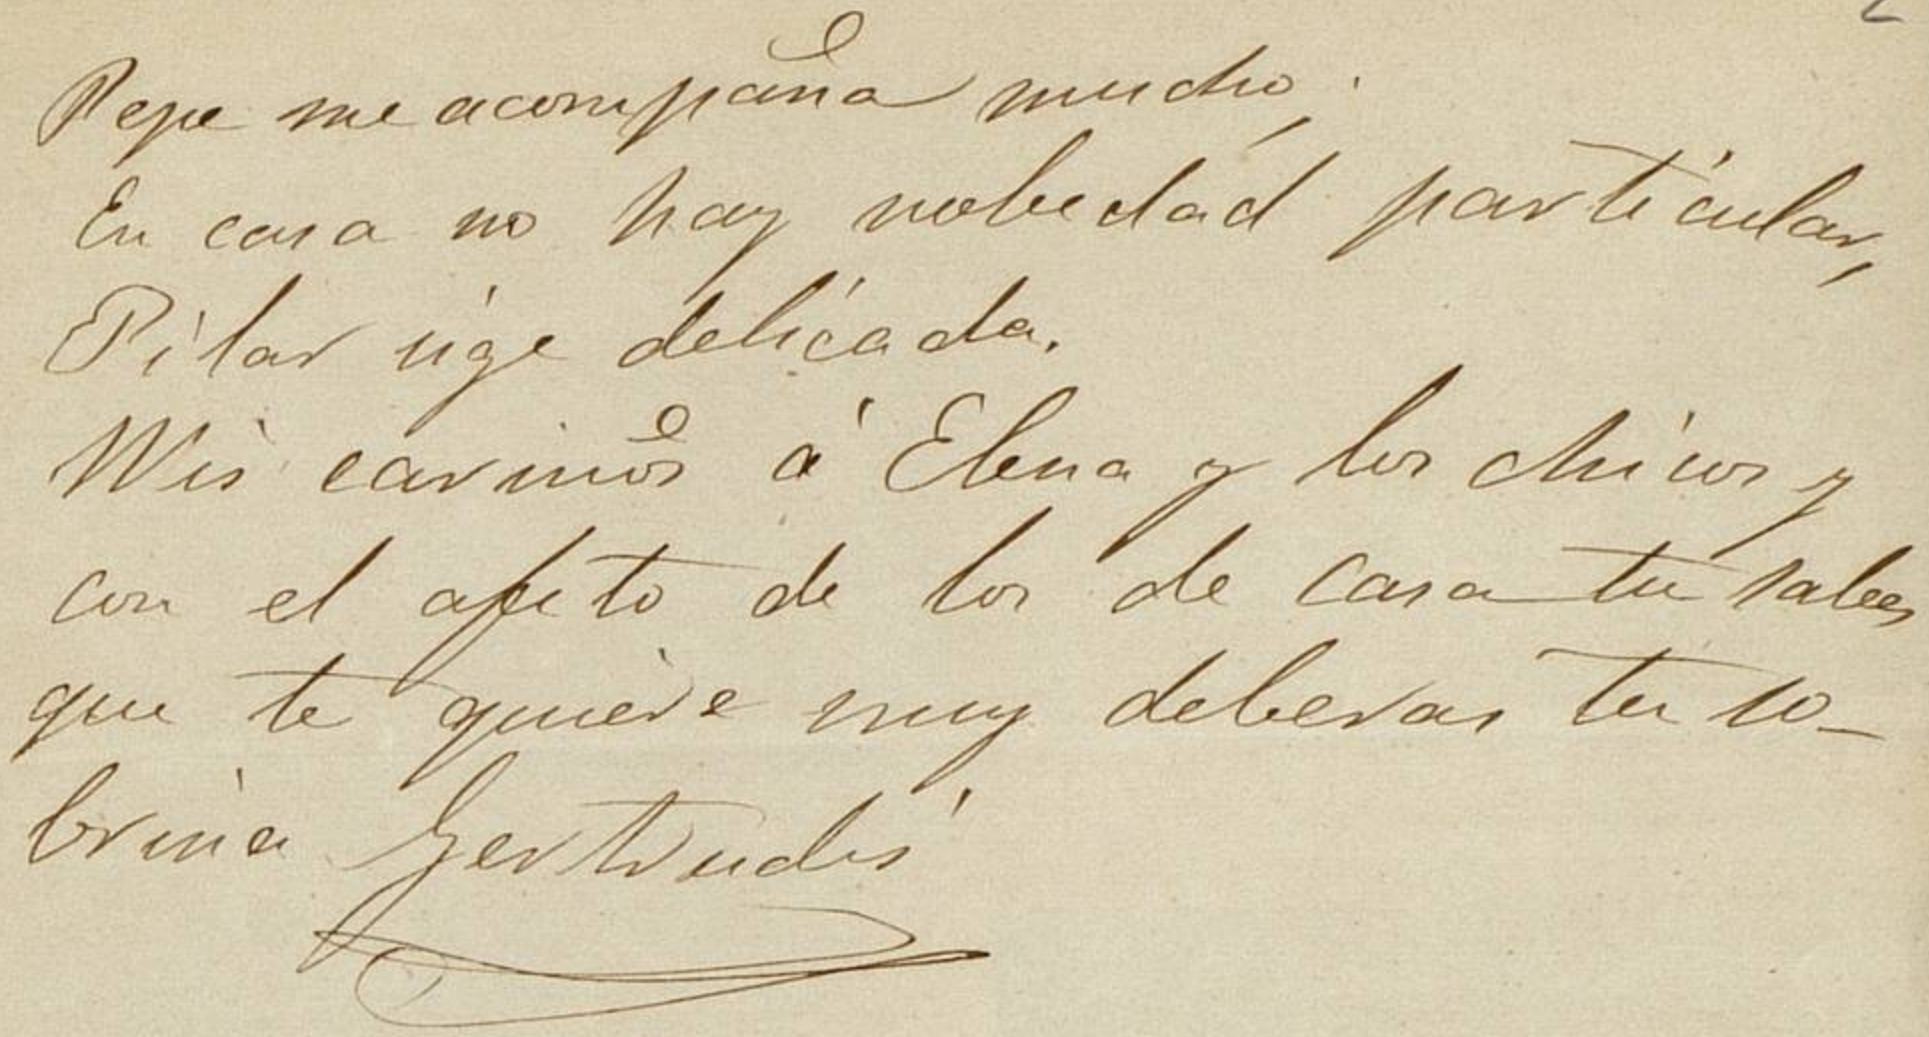 Pepe me acompaña mucho,
En casa no hay nobedad particular,
Pilar sige delicada.
Mis cariños á Elena y los chicos y
con el afeto de los de casa tu sabes
que te quiere muy deberas tu so-
brina Gertrudis